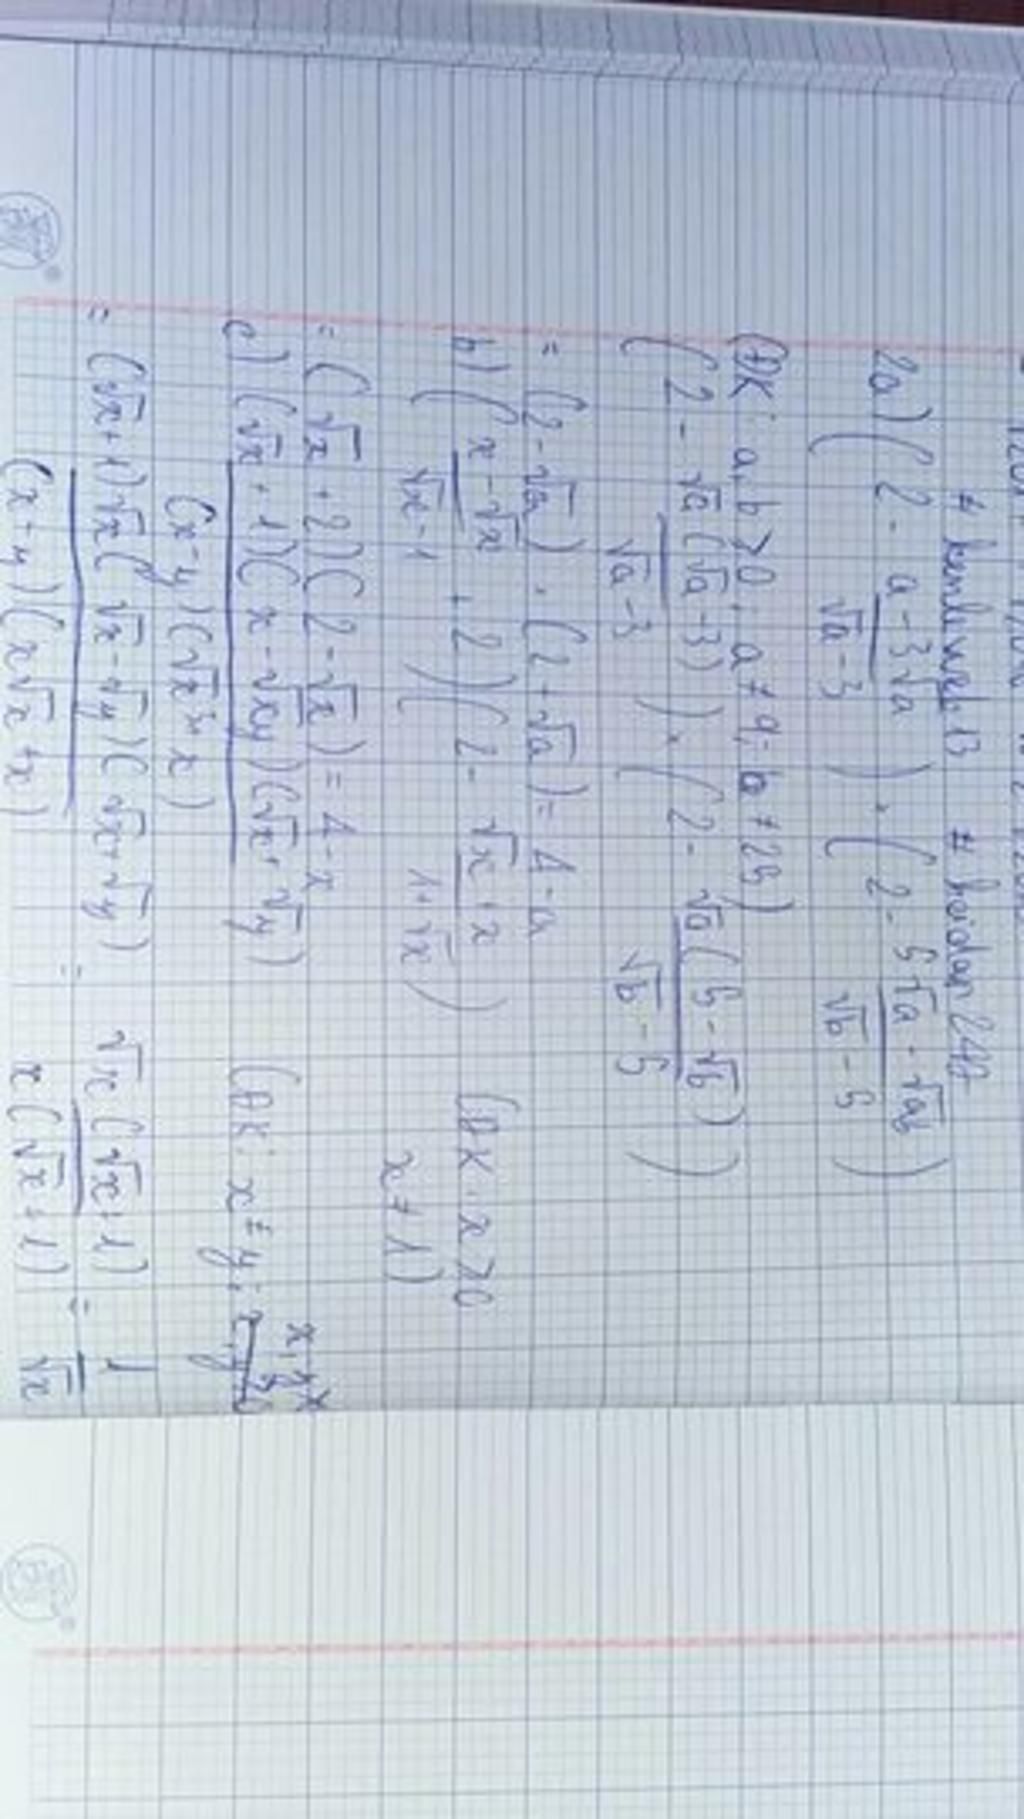 # kenluweb13 # hoidap247
2a) (2 - (a - 3√a)/(√a - 3)) . (2 - (5√a - √ab)/(√b - 5))
(ĐK: a, b ≥ 0, a ≠ 9; b ≠ 25)
(2 - √a(√a - 3)/(√a - 3)) . (2 - √a(5 - √b)/(√b - 5))
= (2 - √a) . (2 + √a) = 4 - a
b) ((x - √x)/(√x - 1) + 2)(2 - (√x + x)/(1 + √x)) (ĐK: x ≥ 0 x ≠ 1)
= (√x + 2)(2 - √x) = 4 - x
c) (√x + 1)(x - √xy)(√x + √y)/(x - y)(√x³ + x) (ĐK: x ≠ y;
= (√x + 1)√x(√x - √y)(√x + √y)/(x + y)(x√x + x) = √x(√x + 1)/x(√x + 1) = 1/√x